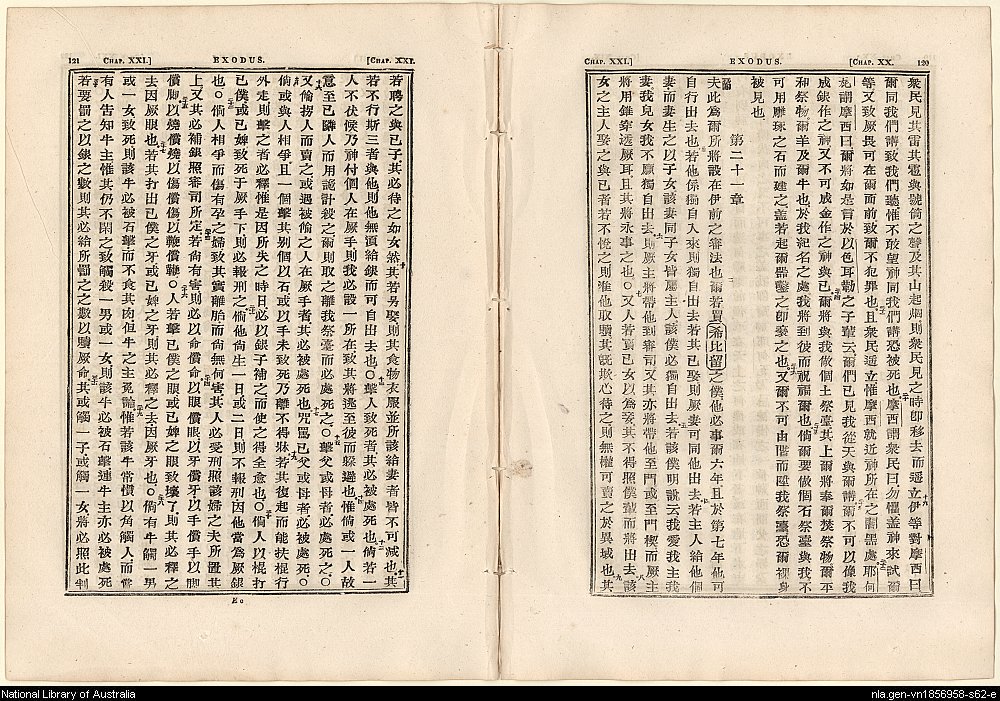 120
[CHAP. XX.
EXODUS.
CHAP. XXI.]
衆民見其雷其雹與號筒之聲及其山起烟則衆民見之時卽移去而遥立伊等對摩西曰
爾同我們講致我們聽惟不敢望神同我們講恐被死也摩西謂衆民曰勿懼蓋神來試爾
等又致厥畏可在爾面前致爾不犯罪也且衆民遥立惟摩西就近神所在之闇黑處耶何
瓦謂摩西曰爾將如是言於以色耳勒之子輩云爾們已見我從天與爾講爾不可以像我
成銀作之神又不可成金作之神與已爾將與我做個土祭臺其上爾將奉爾焚祭物爾平
和祭物爾羊及爾牛也於我紀名之處我將到彼而祝福爾也倘爾要做個石祭臺與我不
可用雕琢之石而建之蓋若起爾器鑿之卽褻之也又爾不可由階而陞我祭臺恐爾裸身
被見也
第二十一章
夫此為爾所將設在伊前之審法也爾若買希比留之僕他必事爾六年且於第七年他可
自行出去也若他係獨自入來則獨自出去若其已娶則厥妻可同他出去若主人給他個
妻而妻生之以子女該妻同子女皆屬主人該僕必獨自出去若該僕明說云我愛我主我
妻我兒女我不願獨自出去則厥主將帶他到審司又其亦將帶他至門或至門楔而厥主
將用錐穿透厥耳且其將永事之也〇又人若賣已女以為妾其不得照僕輩而將出去該
女之主人娶之與已者若不悅之則准他取贖其旣欺心待之則無權可賣之於異域也其
121
CHAP. XXI.]
EXODUS.
[CHAP. XXI.
若聘之與已子其必待之如女然其若另娶則其食物衣服並所該給妻者皆不可減也其
若不行斯三者與他則他無須給銀而可自出去也〇擊人致死者其必被處死也倘若一
人不伏候乃神付個人在厥手則我必設一所在致其將逃至彼而躱避也惟倘或一人故
意至已隣人而用詭計殺之爾則取之離我祭臺而必處死之〇擊父或母者必處死之〇
又倘拐人而賣之或遇被偷之人在厥手者其必被處死也咒罵已父或母者必被處死〇
倘或與人相爭且一個擊其别個以石或以手未致死乃離不得牀若其復起而能扶棍行
外走則擊之者必釋惟是因所失之時日必以銀子補之而使之得全愈也〇倘人以棍打
已僕或已婢致死于厥手下則必報刑之倘他尙生一日或二日則不報刑因他當為厥銀
也〇倘人相爭而傷有孕之婦致其實離胎而尙無何害其人必受刑照該婦之夫所置其
上又其必補銀照審司所定若尙有害則必以命償命以眼償眼以牙償牙以手償手以脚
償脚以燒償燒以傷償傷以鞭償鞭〇人若擊已僕之眼或已婢之眼致壞了則其必釋之
去因厥眼也若其打出已僕之牙或已婢之牙則其必釋之去因厥牙也〇倘有牛觸一男
或一女致死則該牛必被石擊而不食其肉但牛之主免論惟若該牛常慣以角觸人而當
有人告知牛主惟其仍不閑之致觸殺一男或一女則該牛必被石擊連牛主亦必被處死
若要罰之以銀之數則其必給所罰之之數以贖厥命其或觸一子或觸一女將必照此判